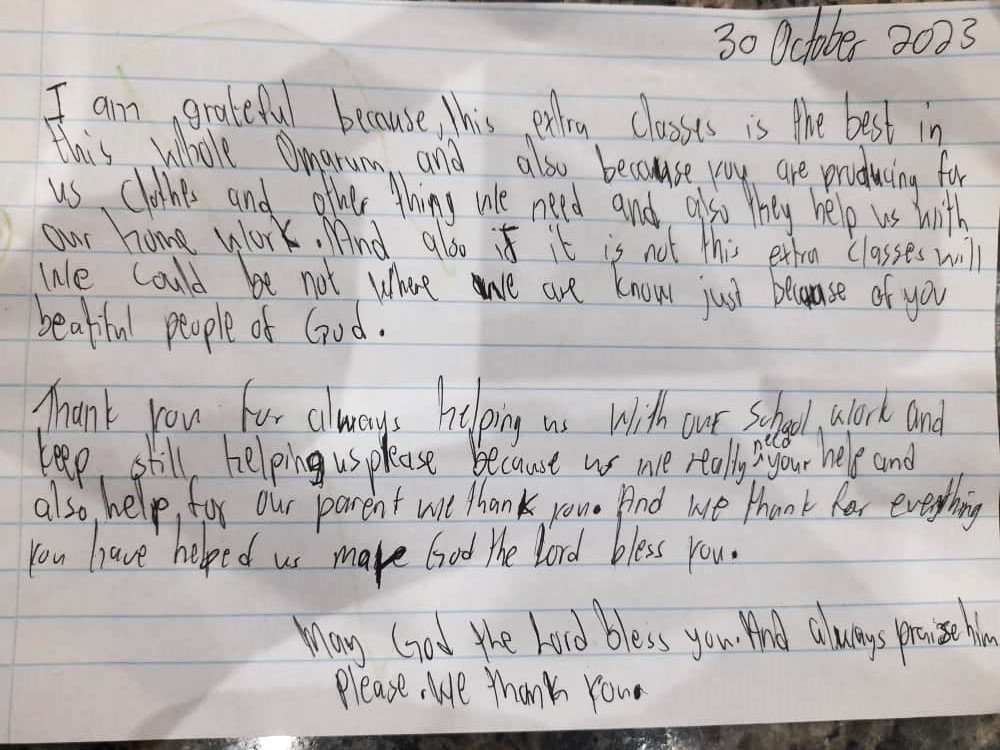 30 October 2023
I am grateful because, this extra classes is the best in
this whole Omarum and also because you are producing for
us, clothes and other thing we need and also they help us with
our home work. And also if it is not this extra classes will
we could be not where we are know just because of you
beatiful people of God.
Thank you for always helping us with our school work and
keep still helping us please because us we really need your help and
also, help, for our parent we thank you. And we thank for everything
you have helped us make God the Lord bless you.
May God the Lord bless you. And always praise him
please. We thank you.